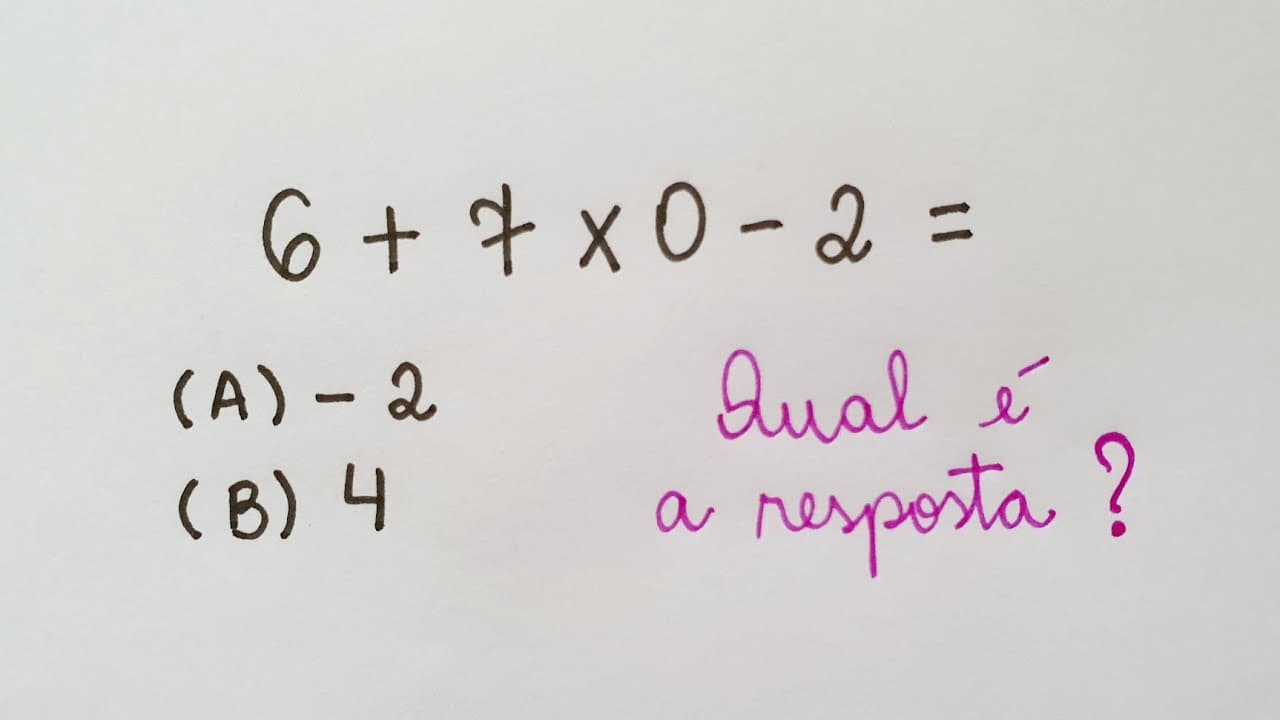 6 + 7 x 0 - 2 =
(A) - 2
(B) 4
Qual é
a resposta ?